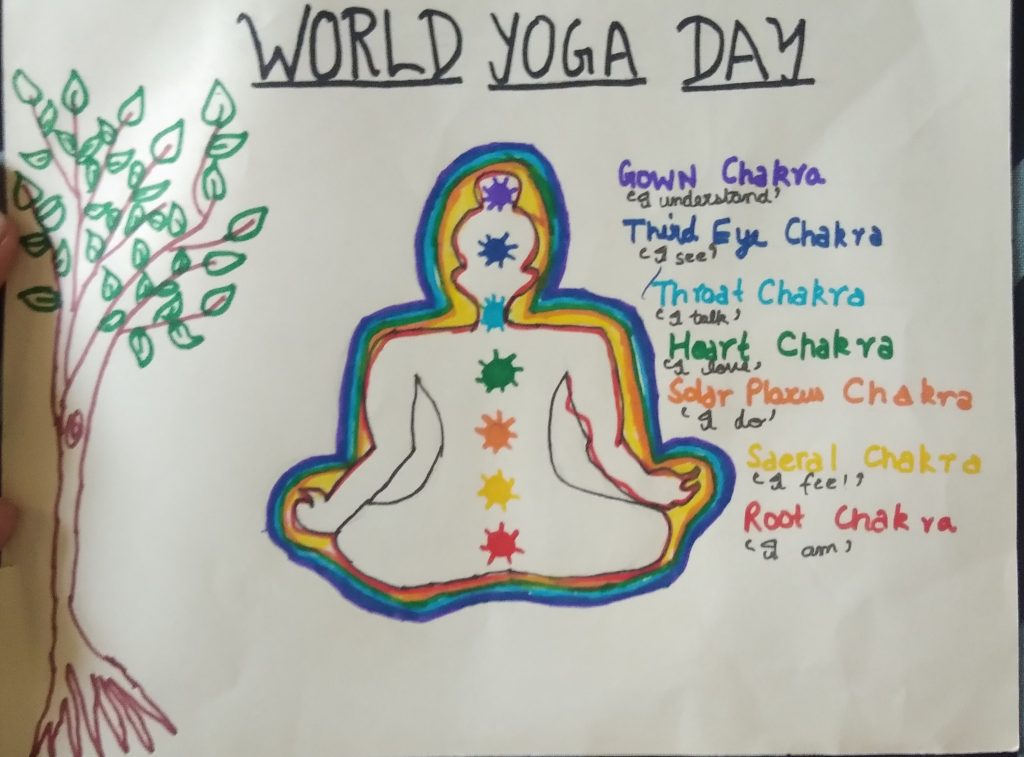 WORLD YOGA DAY
Gown Chakra
'I understand'
Third Eye Chakra
'I see'
Throat Chakra
'I talk'
Heart Chakra
'I love'
Solar Plaxus Chakra
'I do'
Saeral Chakra
'I feel'
Root Chakra
'I am'